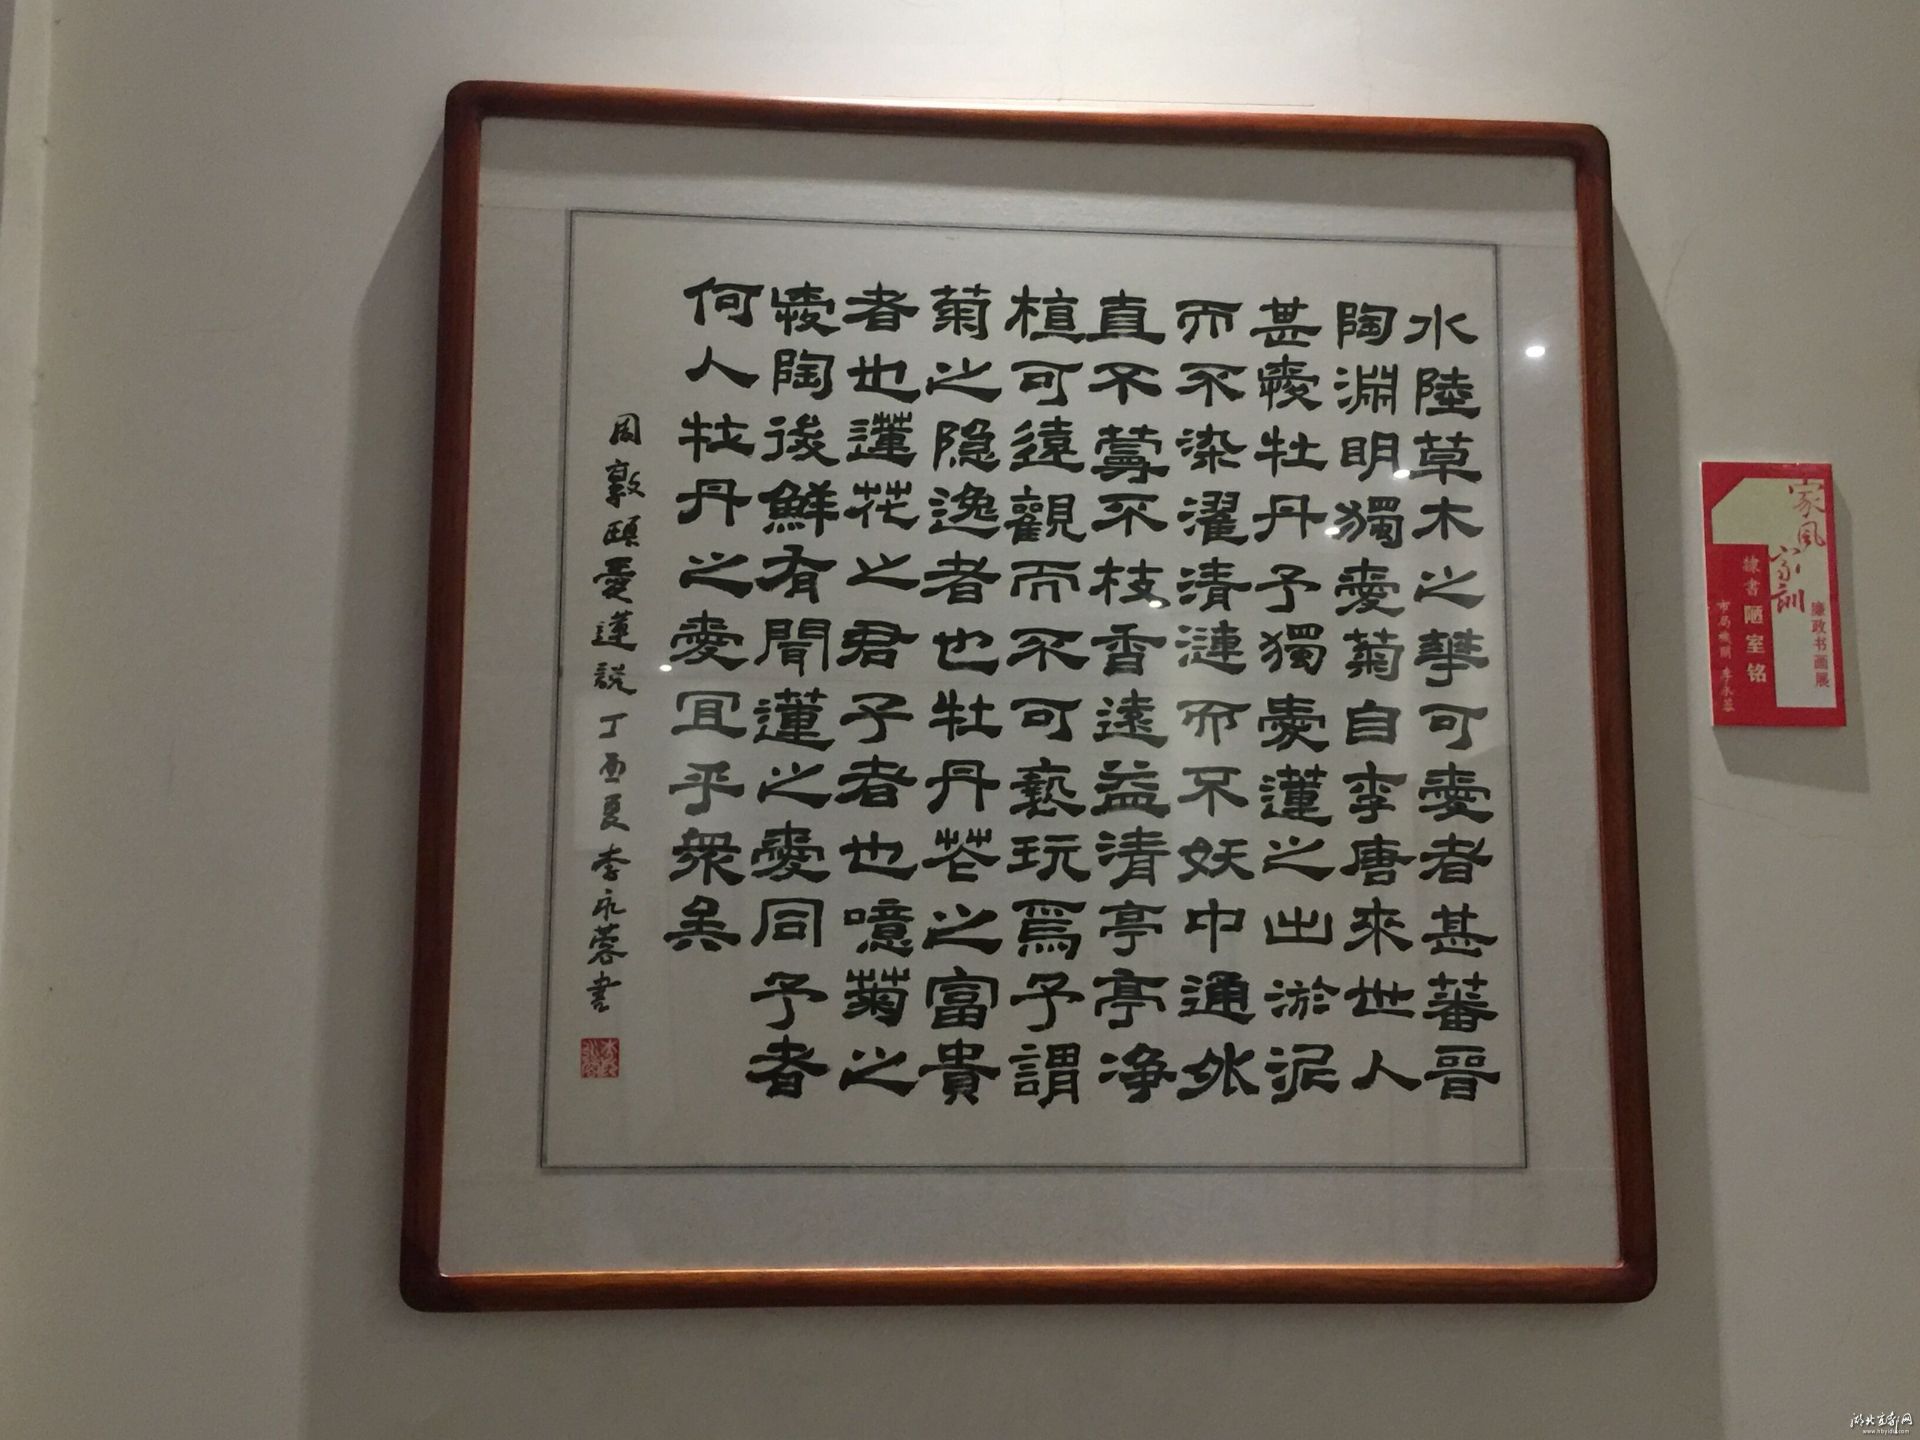 水陸草木之華可愛者甚蕃晉
陶淵明獨愛菊自李唐來世人
甚愛牡丹予獨愛蓮之出淤泥
而不染濯清漣而不妖中通外
直不蔓不枝香遠益清亭亭净
植可遠觀而不可褻玩焉予謂
菊之隐逸者也牡丹花之富貴
者也蓮花之君子者也噫菊之
愛陶後鮮有聞蓮之愛同予者
何人牡丹之愛宜乎衆矣
周敦頤愛蓮説丁酉夏李永蓉書
家风
家训
廉政书画展
隶书 陋室铭
市局机关 李永蓉
湖北宜都网
www.hbyidu.com